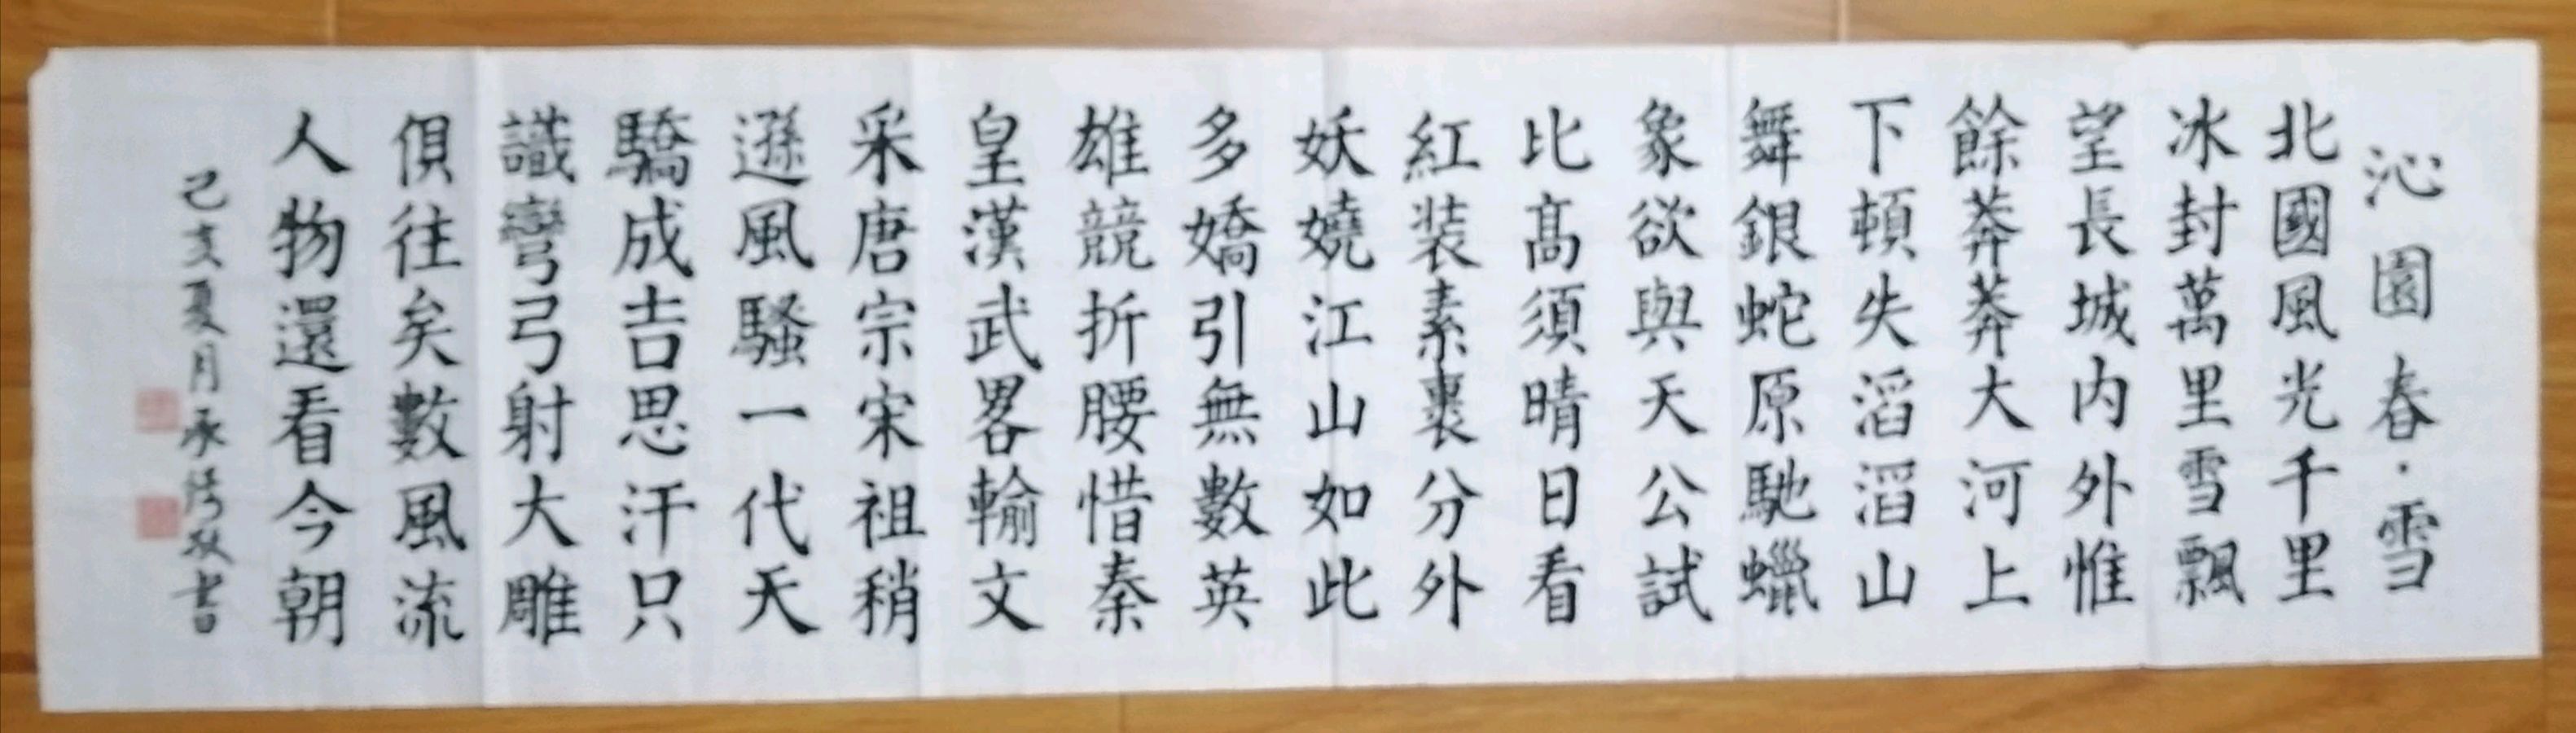 沁園春·雪
北國風光千里
冰封萬里雪飄
望長城内外惟
餘莽莽大河上
下頓失滔滔山
舞銀蛇原馳蠟
象欲與天公試
比髙須晴日看
紅装素裹分外
妖嬈江山如此
多嬌引無數英
雄競折腰惜秦
皇漢武畧輸文
采唐宗宋祖稍
遜風騷一代天
驕成吉思汗只
識彎弓射大雕
俱往矣數風流
人物還看今朝
己亥夏月承敬書